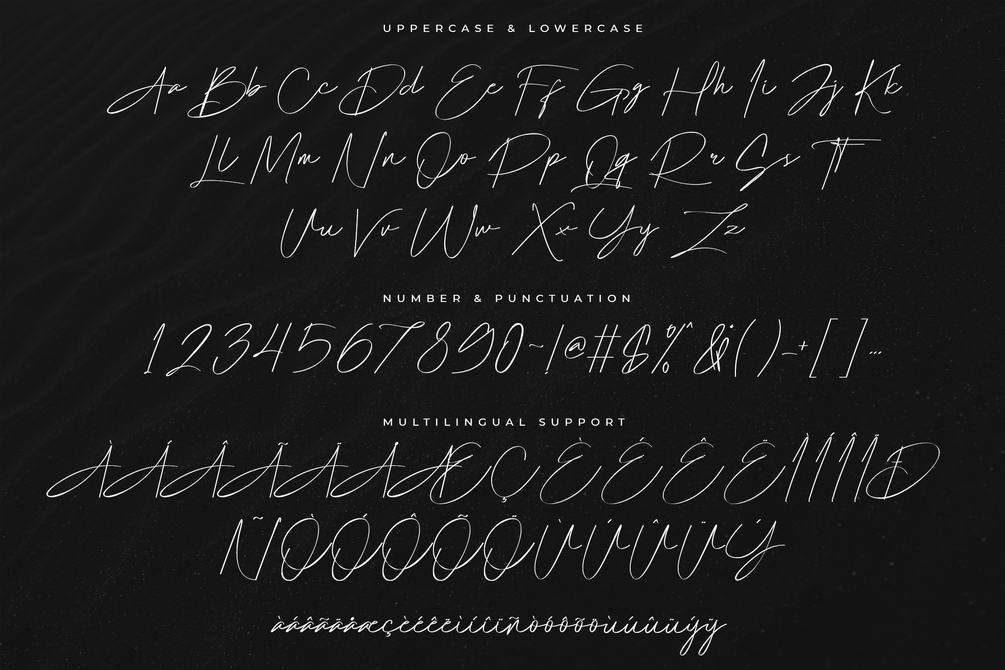 UPPERCASE & LOWERCASE
Aa Bb Cc Dd Ee Ff Gg Hh Ii Jj Kk
Ll Mm Nn Oo Pp Qq Rr Ss Tt
Uu Vv Ww Xx Yy Zz
NUMBER & PUNCTUATION
1234567890~!@#$%^&()_+[]...
MULTILINGUAL SUPPORT
ÀÁÂÃÄÅÆÇÈÉÊËÌÍÎÏÐ
ÑÒÓÔÕÖÙÚÛÜÝ
àáâãäåæçèéêëìíîïñòóôõöùúûüýÿ